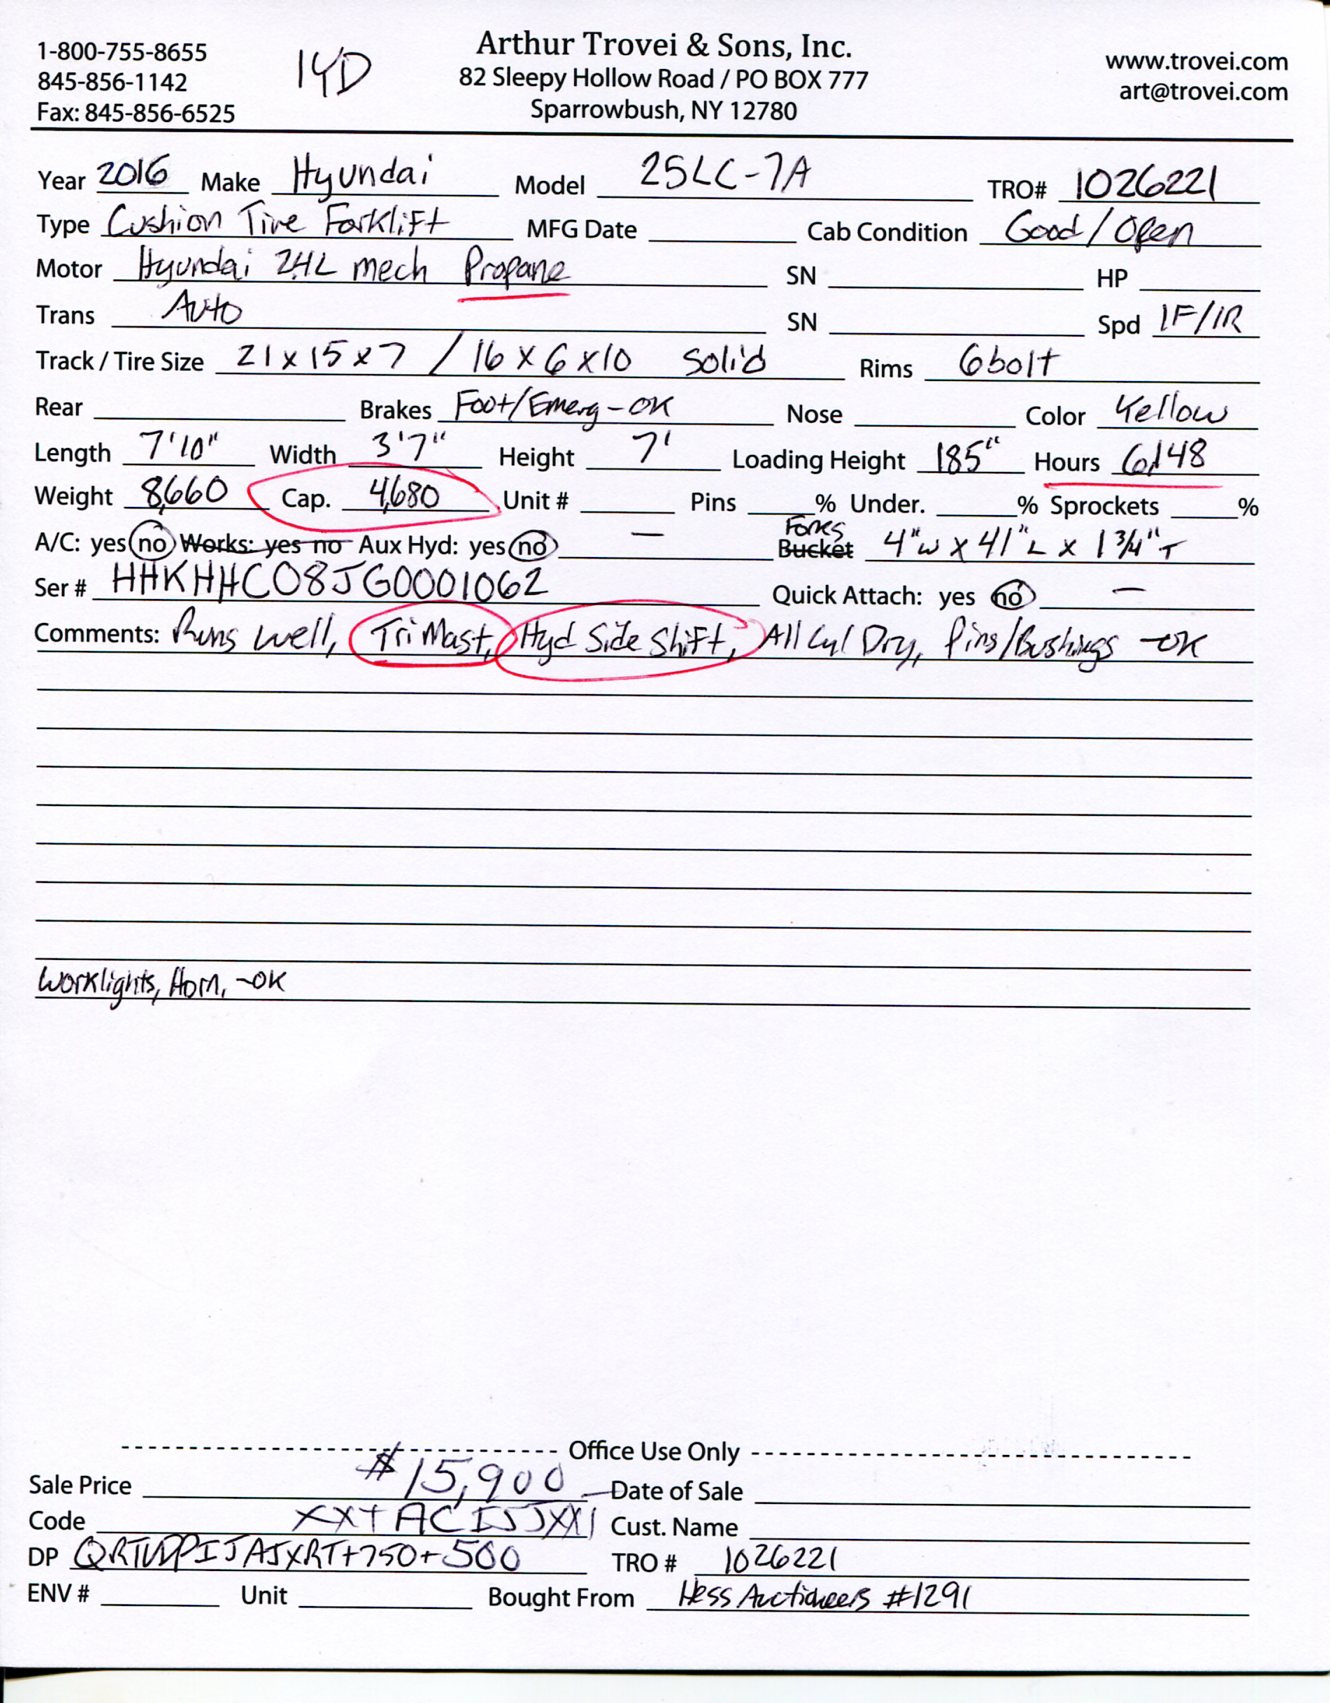 1-800-755-8655
845-856-1142
Fax: 845-856-6525
14D
Arthur Trovei & Sons, Inc.
82 Sleepy Hollow Road / PO BOX 777
Sparrowbush, NY 12780
www.trovei.com
art@trovei.com
Year 2016 Make Hyundai Model 25LC-7A TRO# 1026221
Type Cushion Tire Forklift MFG Date Cab Condition Good/Open
Motor Hyundai 2.4L mech Propane SN HP
Trans Auto SN Spd 1F/1R
Track / Tire Size 21x15x7 / 16x6x10 Solid Rims 6bolt
Rear Brakes Foot/Emerg-OK Nose Color Yellow
Length 7'10" Width 3'7" Height 7' Loading Height 185" Hours 6,148
Weight 8,660 Cap. 4,680 Unit # Pins % Under. % Sprockets %
A/C: yes no Works: yes no Aux Hyd: yes no — Bucket Forks 4"W x 41"L x 1 3/4"T
Ser # HHKHHC08JG0001062 Quick Attach: yes no —
Comments: Runs well, Tri Mast, Hyd Side Shift, All Cyl Dry, Pins/Bushings -OK
Worklights, Horn, -OK
Office Use Only
Sale Price $15,900 Date of Sale
Code Cust. Name
DP TRO # 1026221
ENV # Unit Bought From Hess Auctioneers #1291